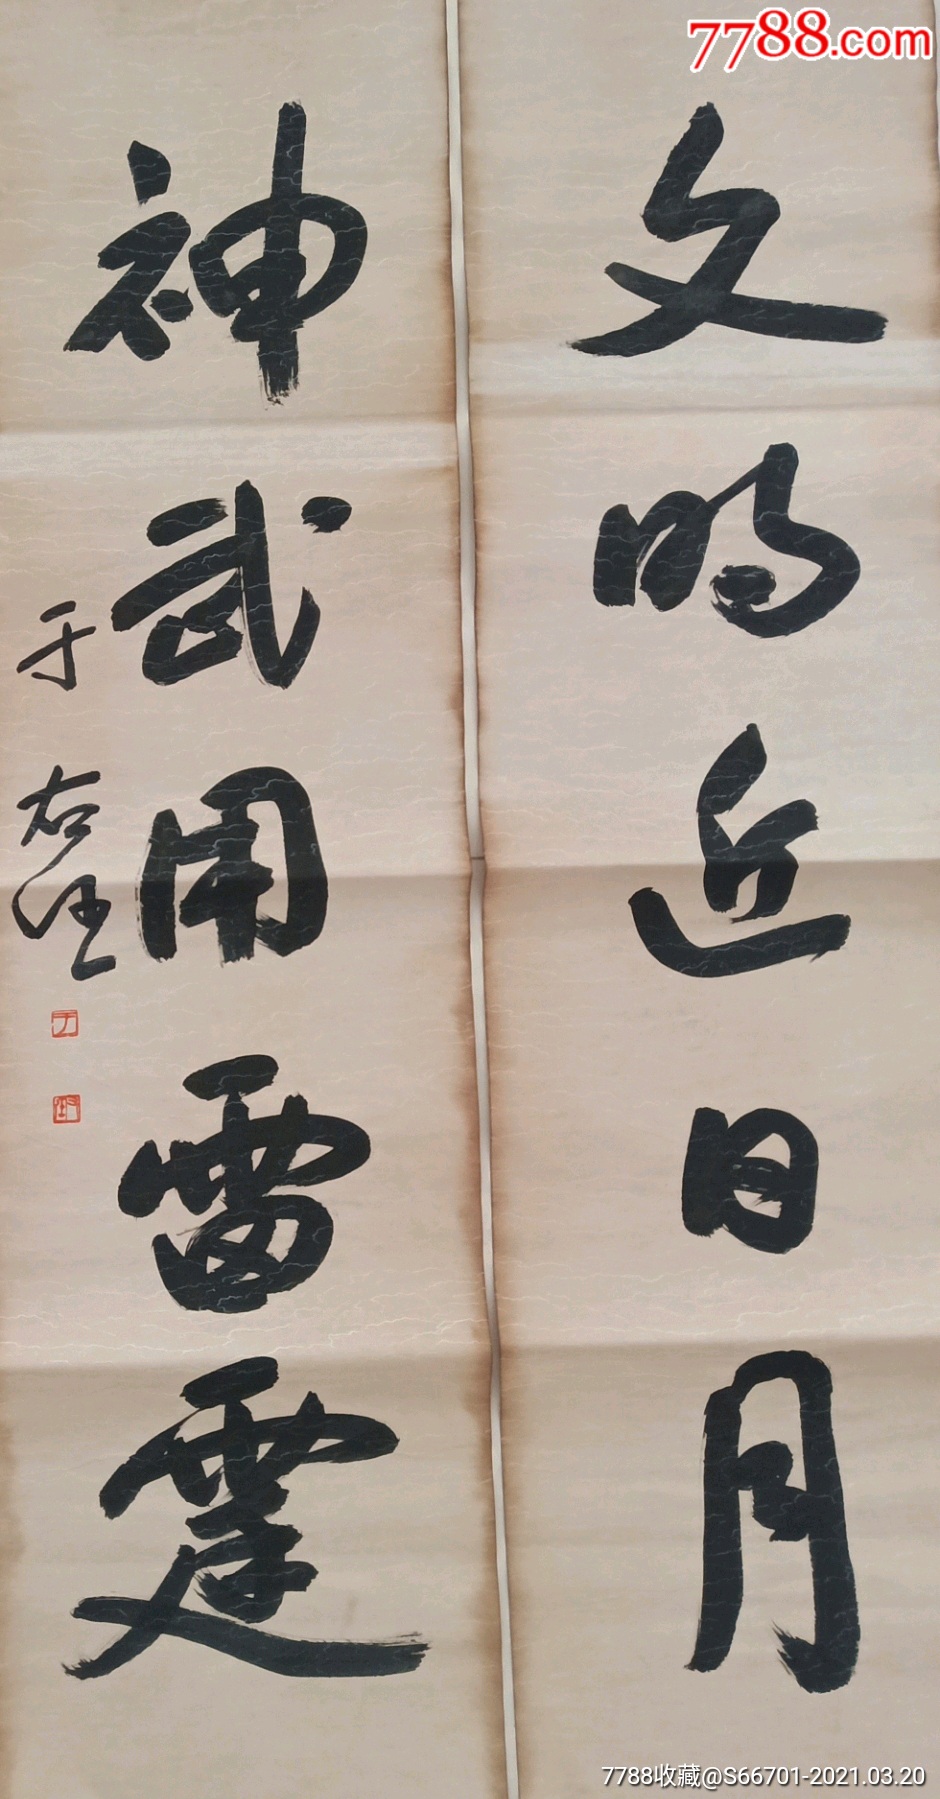 7788.com
文明近日月
神武用雷霆
于右任
7788收藏@S66701-2021.03.20